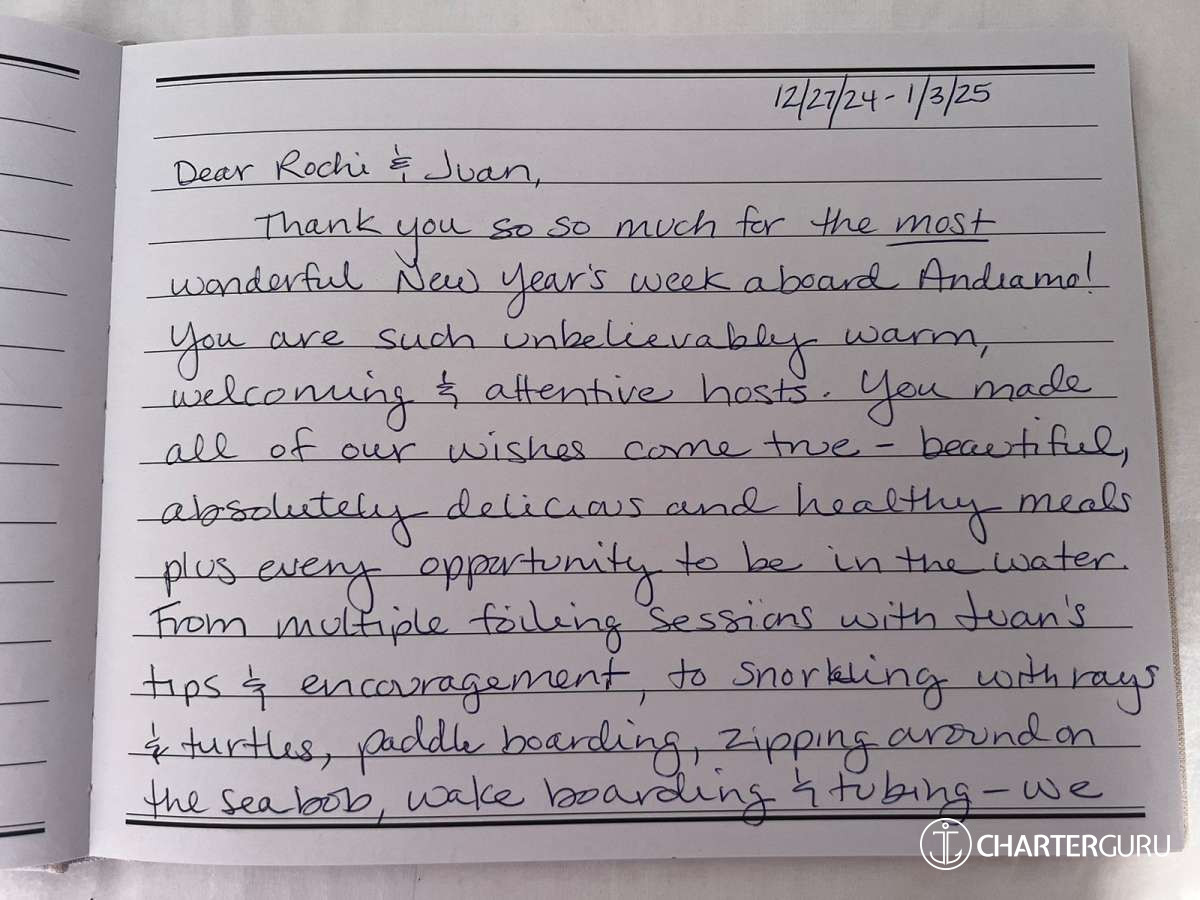 12/27/24 - 1/3/25
Dear Rochi & Juan,
Thank you so so much for the most
wonderful New Year's week aboard Andiamo!
You are such unbelievably warm,
welcoming & attentive hosts. You made
all of our wishes come true - beautiful,
absolutely delicious and healthy meals
plus every opportunity to be in the water.
From multiple foiling sessions with Juan's
tips & encouragement, to snorkling with rays
& turtles, paddle boarding, zipping around on
the seabob, wake boarding & tubing - we
CHARTERGURU